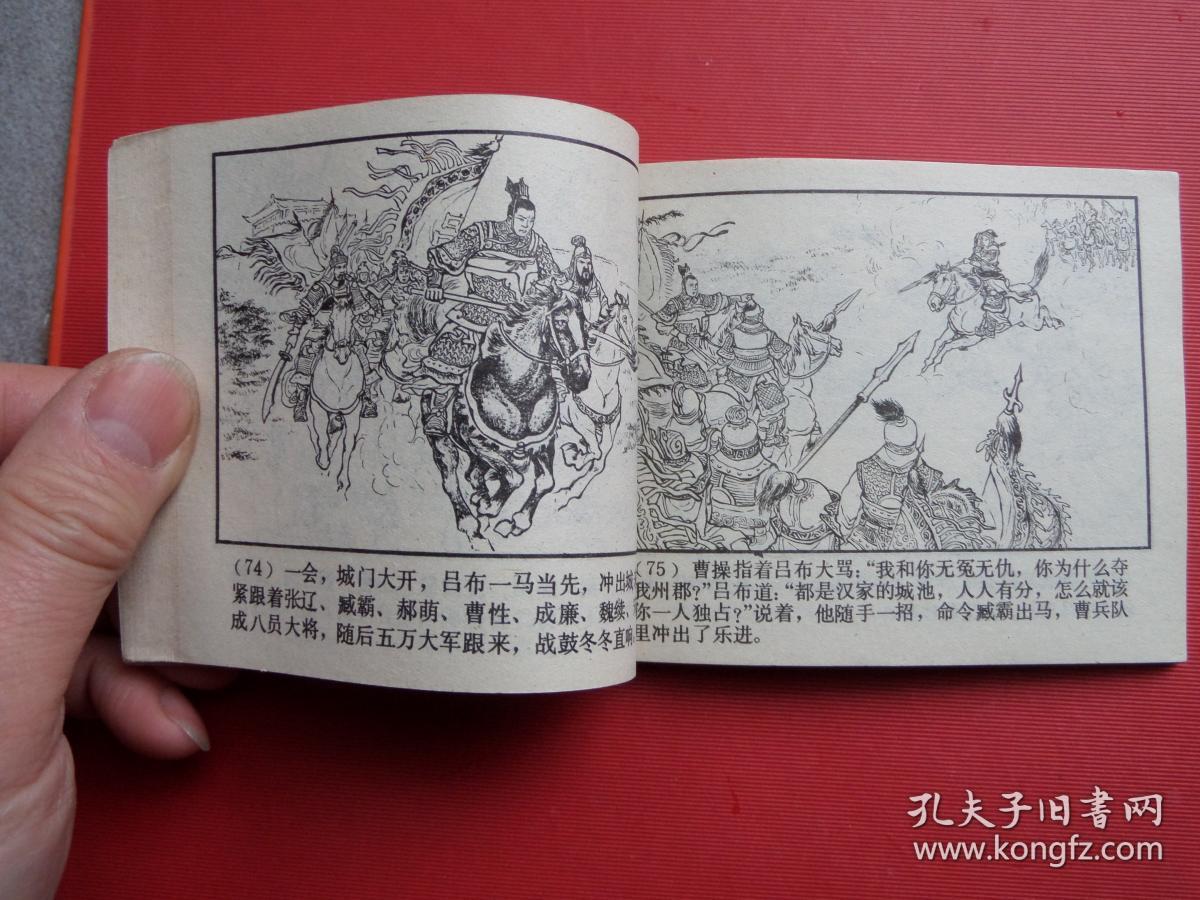 (74) 一会，城门大开，吕布一马当先，冲出城
紧跟着张辽、臧霸、郝萌、曹性、成廉、魏续、
成八员大将，随后五万大军跟来，战鼓冬冬直响
(75) 曹操指着吕布大骂：“我和你无冤无仇，你为什么夺
我州郡？”吕布道：“都是汉家的城池，人人有分，怎么就该
你一人独占？”说着，他随手一招，命令臧霸出马，曹兵队
里冲出了乐进。
孔夫子旧书网
www.kongfz.com